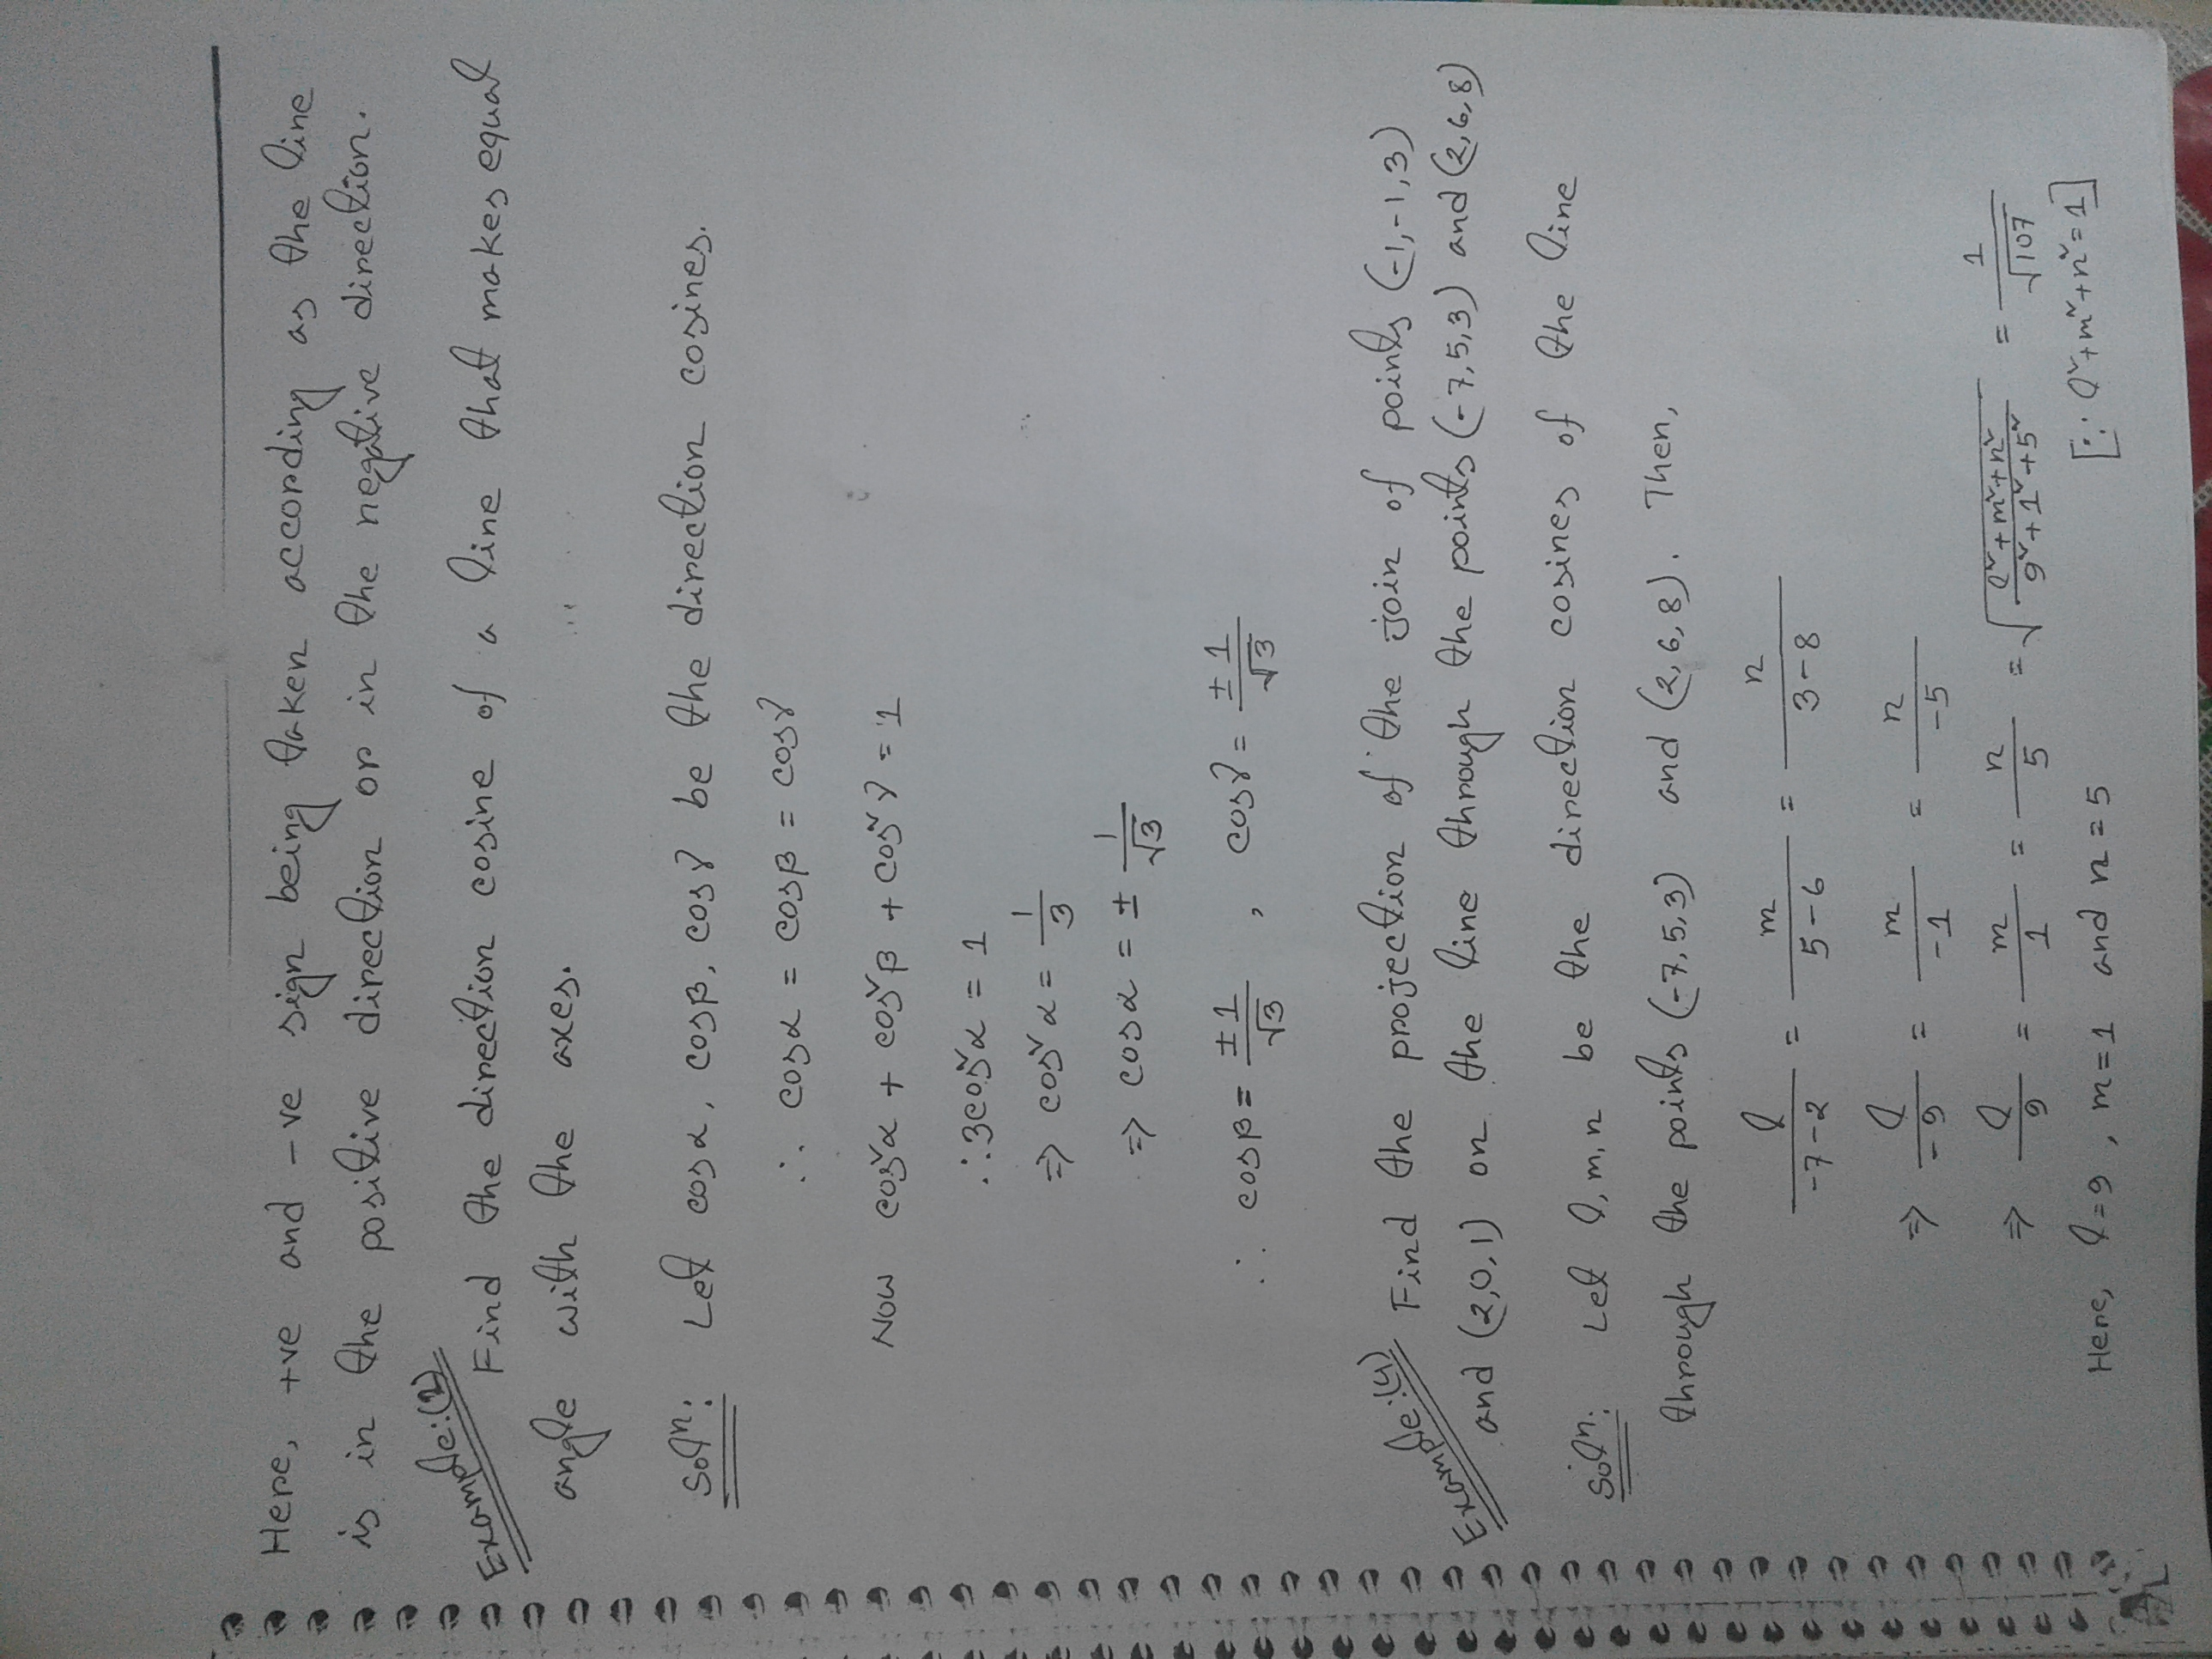 Here, +ve and -ve sign being taken according as the line
is in the positive direction or in the negative direction.
Example:(2)
Find the direction cosine of a line that makes equal
angle with the axes.
Solⁿ: Let cosα, cosβ, cosγ be the direction cosines.
∴ cosα = cosβ = cosγ
Now cos²α + cos²β + cos²γ = 1
∴ 3cos²α = 1
⇒ cos²α = 1/3
⇒ cosα = ± 1/√3
∴ cosβ = ±1/√3 , cosγ = ±1/√3
Example:(4) Find the projection of the join of points (-1,-1,3)
and (2,0,1) on the line through the points (-7,5,3) and (2,6,8)
Solⁿ: Let l, m, n be the direction cosines of the line
through the points (-7,5,3) and (2,6,8). Then,
l/(-7-2) = m/(5-6) = n/(3-8)
⇒ l/-9 = m/-1 = n/-5
⇒ l/9 = m/1 = n/5 = √((l²+m²+n²)/(9²+1²+5²)) = 1/√107
Here, l=9, m=1 and n=5 [∵ l²+m²+n²=1]